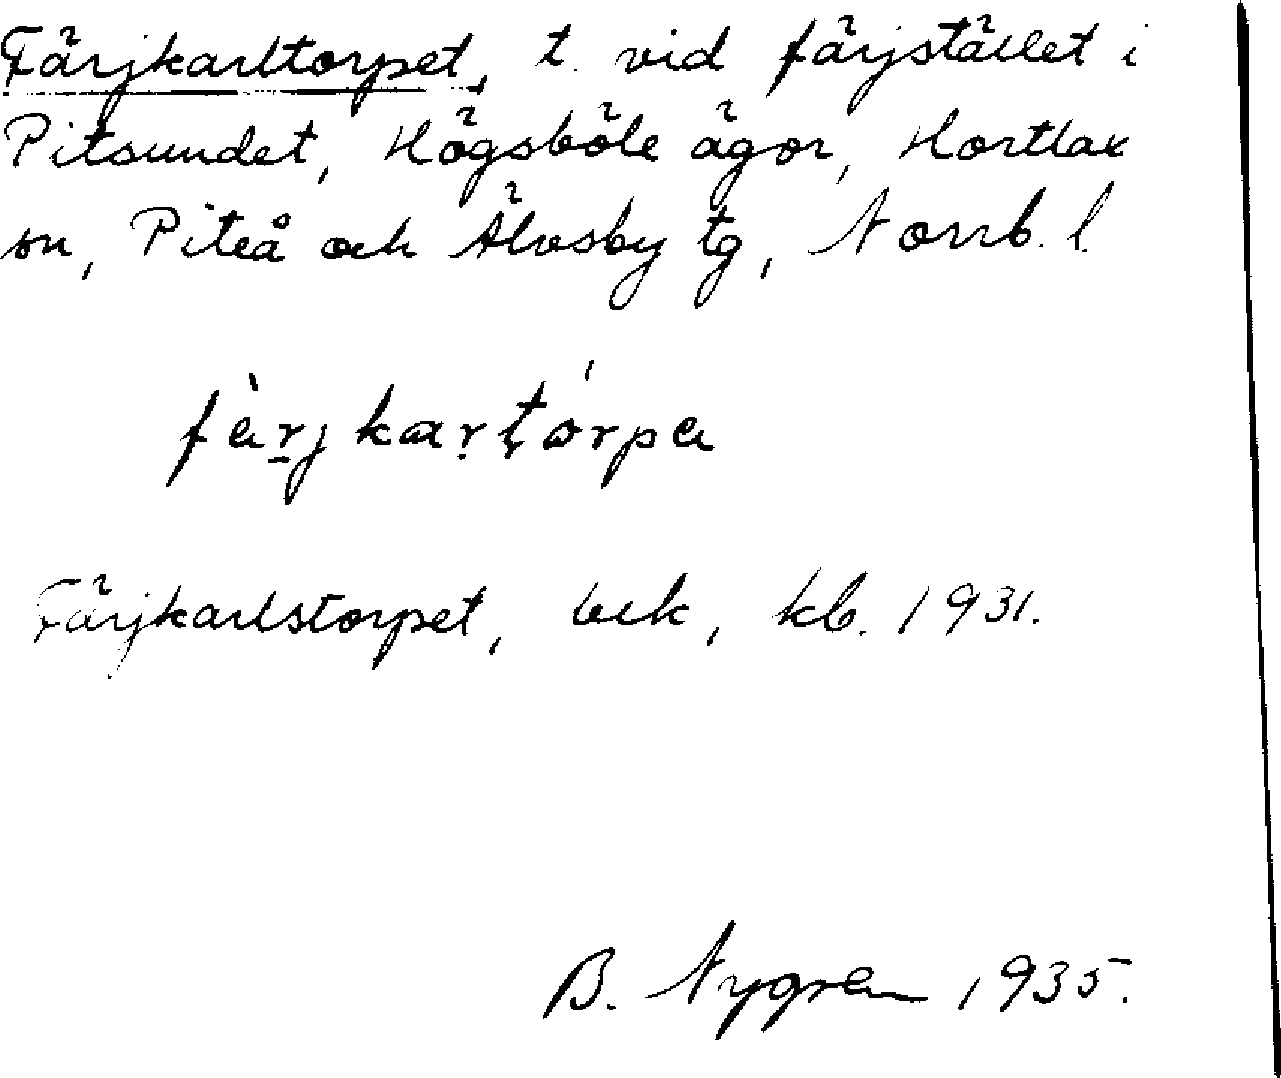 Färjkarltorpet, t. vid färjstället i
Pitsundet, Högsböle ägor, Hortlax
sn, Piteå och Älvsby tg, Norrb. l.
fàrj kartórpa
Färjkarlstorpet, uek, kb. 1931.
B. Nygren 1935.